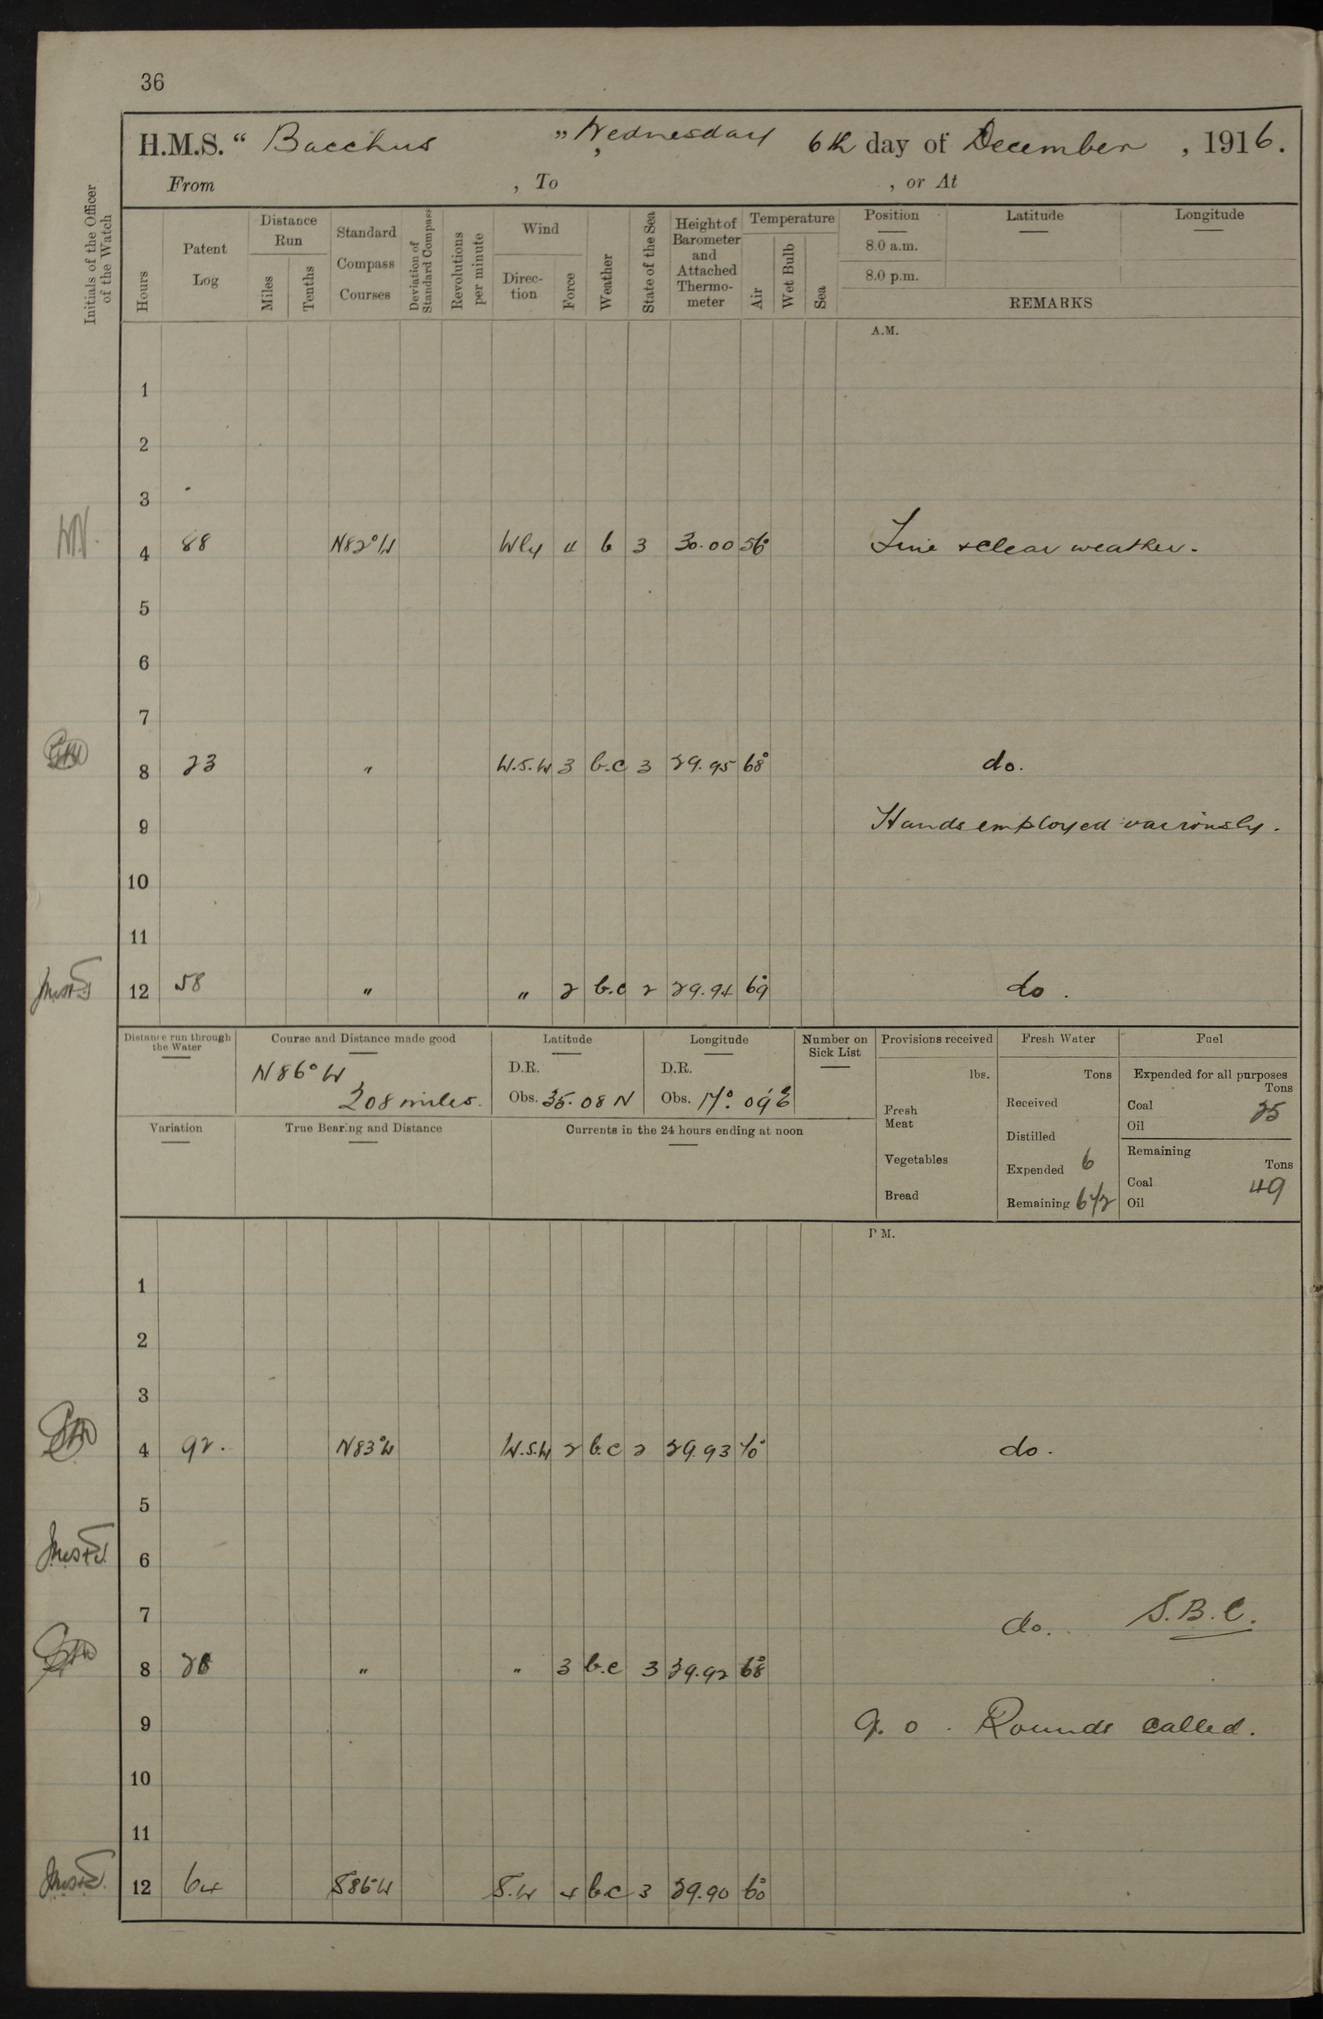 36
H.M.S. “ Bacchus ”, Wednesday 6th day of December , 1916.
From , To , or At
Initials of the Officer of the Watch
Hours
Patent Log
Distance Run
Miles
Tenths
Standard Compass Courses
Deviation of Standard Compass
Revolutions per minute
Wind
Direc-tion
Force
Weather
State of the Sea
Height of Barometer and Attached Thermo-meter
Temperature
Air
Wet Bulb
Sea
Position Latitude Longitude
8.0 a.m.
8.0 p.m.
REMARKS
A.M.
1
2
3
4 88 N82°W Wly 4 b 3 30.00 56° Fine & clear weather.
5
6
7
8 23 " W.S.W 3 b.c 3 29.95 68° do.
9 Hands employed variously.
10
11
12 58 " " 2 b.c 2 29.94 69° do.
Distance run through the Water
Course and Distance made good
N86°W
208 miles.
Latitude
D.R.
Obs. 35.08 N
Longitude
D.R.
Obs. 17°.09'E
Number on Sick List
Provisions received
lbs.
Fresh Meat
Vegetables
Bread
Fresh Water
Tons
Received
Distilled
Expended 6
Remaining 642
Fuel
Expended for all purposes
Tons
Coal 25
Oil
Remaining
Tons
Coal 49
Oil
Variation
True Bearing and Distance
Currents in the 24 hours ending at noon
P.M.
1
2
3
4 92. N83°W W.S.W 2 b.c 2 29.93 70° do.
5
6
7 do. S.B.C.
8 28 " " 3 b.c 3 29.92 68°
9 9.0. Rounds called.
10
11
12 64 S86°W S.W 4 b.c 3 29.90 60°